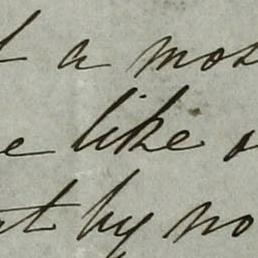 a mos
like
by no